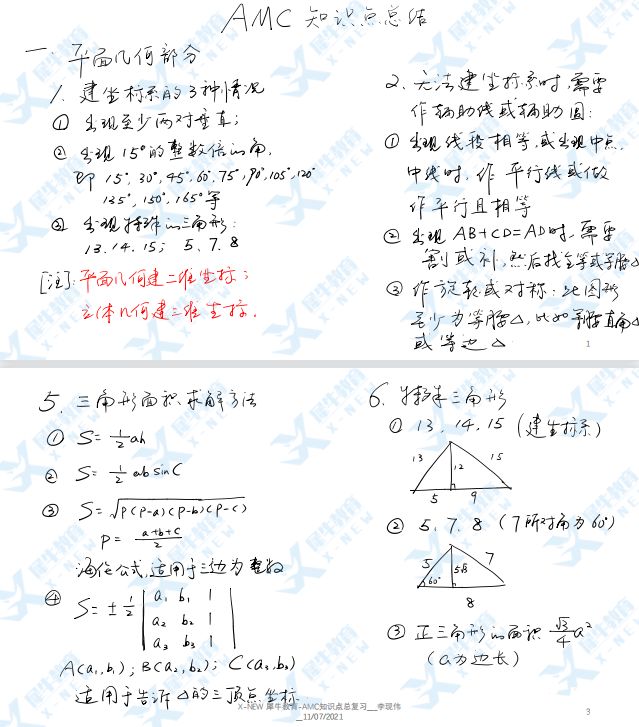 AMC 知识点总结
一. 平面几何部分
1. 建坐标系的3种情况
① 出现至少两对垂直;
② 出现 15°的整数倍的角,
即 15°, 30°, 45°, 60°, 75°, 90°, 105°, 120°
135°, 150°, 165° 等
③ 出现特殊的三角形:
13. 14. 15; 5、7、8
[注]: 平面几何建二维坐标;
立体几何建三维坐标.
2. 无法建坐标系时,需要
作辅助线或辅助圆:
① 出现线段相等,或出现中点,
中线时,作平行线或做
作平行且相等
② 出现 AB+CD=AD时,需要
割或补,然后找全等或等腰△
③ 作旋转或对称: 此图形
至少为等腰△,比如等腰直角△
或等边△
1
5. 三角形面积求解方法
① S= 1/2 ah
② S= 1/2 ab sinC
③ S= √P(P-a)(P-b)(P-c)
P= a+b+c/2
海伦公式,适用于三边为整数
④ S= ± 1/2 | a₁ b₁ 1 |
a₂ b₂ 1
a₃ b₃ 1
A(a₁,b₁); B(a₂,b₂); C(a₃,b₃)
适用于告诉△的三顶点坐标
6. 特殊三角形
① 13、14、15 (建坐标系)
13 12 15
5 9
② 5、7、8 (7所对角为60°)
5 5√3 7
60°
8
③ 正三角形的面积 √3/4 a²
(a为边长)
X-NEW 犀牛教育-AMC知识点总复习__李现伟
__11/07/2021
3
犀牛教育
X-NEW